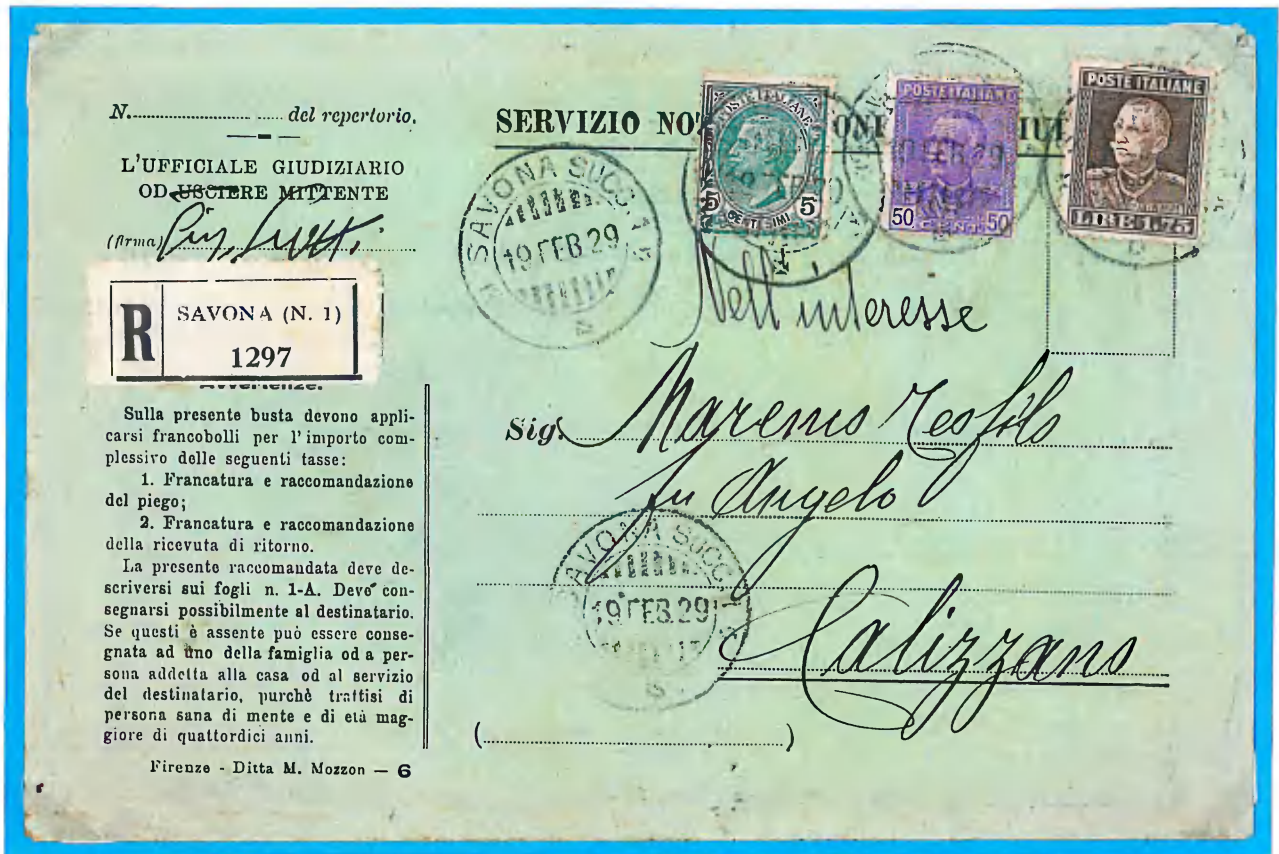 N. del repertorio.
L'UFFICIALE GIUDIZIARIO
OD USCIERE MITTENTE
(firma)
R
SAVONA (N. 1)
1297
Avvertenze.
Sulla presente busta devono appli-
carsi francobolli per l'importo com-
plessivo delle seguenti tasse:
1. Francatura e raccomandazione
del piego;
2. Francatura e raccomandazione
della ricevuta di ritorno.
La presente raccomandata deve de-
scriversi sui fogli n. 1-A. Deve con-
segnarsi possibilmente al destinatario.
Se questi è assente può essere conse-
gnata ad uno della famiglia od a per-
sona addetta alla casa od al servizio
del destinatario, purchè trattisi di
persona sana di mente e di età mag-
giore di quattordici anni.
Firenze - Ditta M. Mozzon — 6
SERVIZIO
POSTE ITALIANE
5 5
CENTESIMI
POSTE ITALIANE
50 CENT. 50
POSTE ITALIANE
LIRE 1,75
SAVONA SUCC. 1
19 FEB. 29
Nell'interesse
Sig. Marenco Teofilo
fu Angelo
SAVONA SUCC. 1
19 FEB. 29
Calizzano
( )